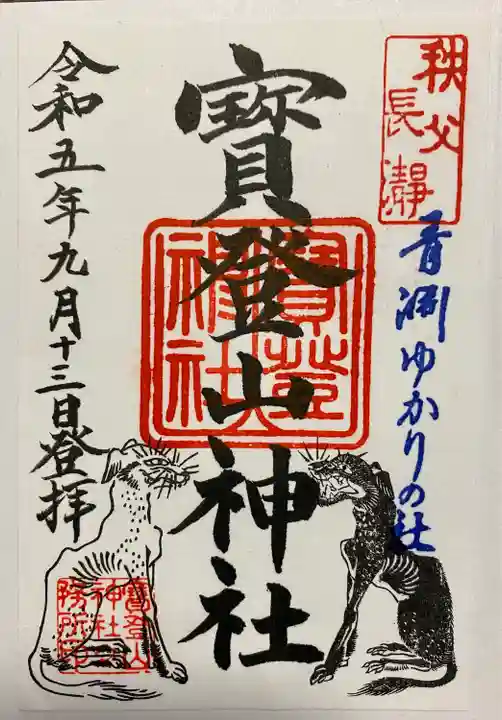 秩父
長瀞
青淵ゆかりの社
寳登山神社
寳登
山
神社
令和五年九月十三日登拝
寳登山
神社社
務所印